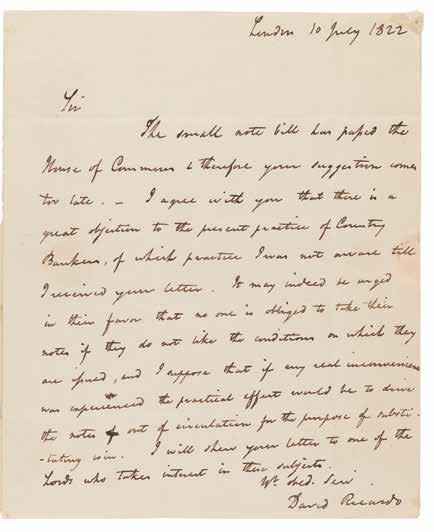 London 10 July 1822
Sir
The small note bill has passed the
House of Commons & therefore your suggestion comes
too late. – I agree with you that there is a
great objection to the present practice of Country
Bankers, of which practice I was not aware till
I received your letter. It may indeed be urged
in their favor that no one is obliged to take their
notes if they do not like the conditions on which they
are issued, and I suppose that if any real inconvenience
was experienced the practical effect would be to drive
the notes out of circulation for the purpose of substi-
-tuting coin. I will shew your letter to one of the
Lords who takes interest in these subjects.
Yr. obed. Serv.
David Ricardo